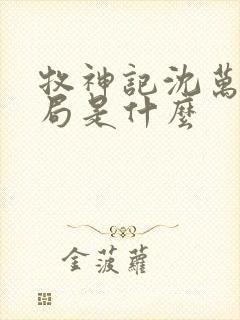 牧神記沈萬
局是什麼
金菠蘿